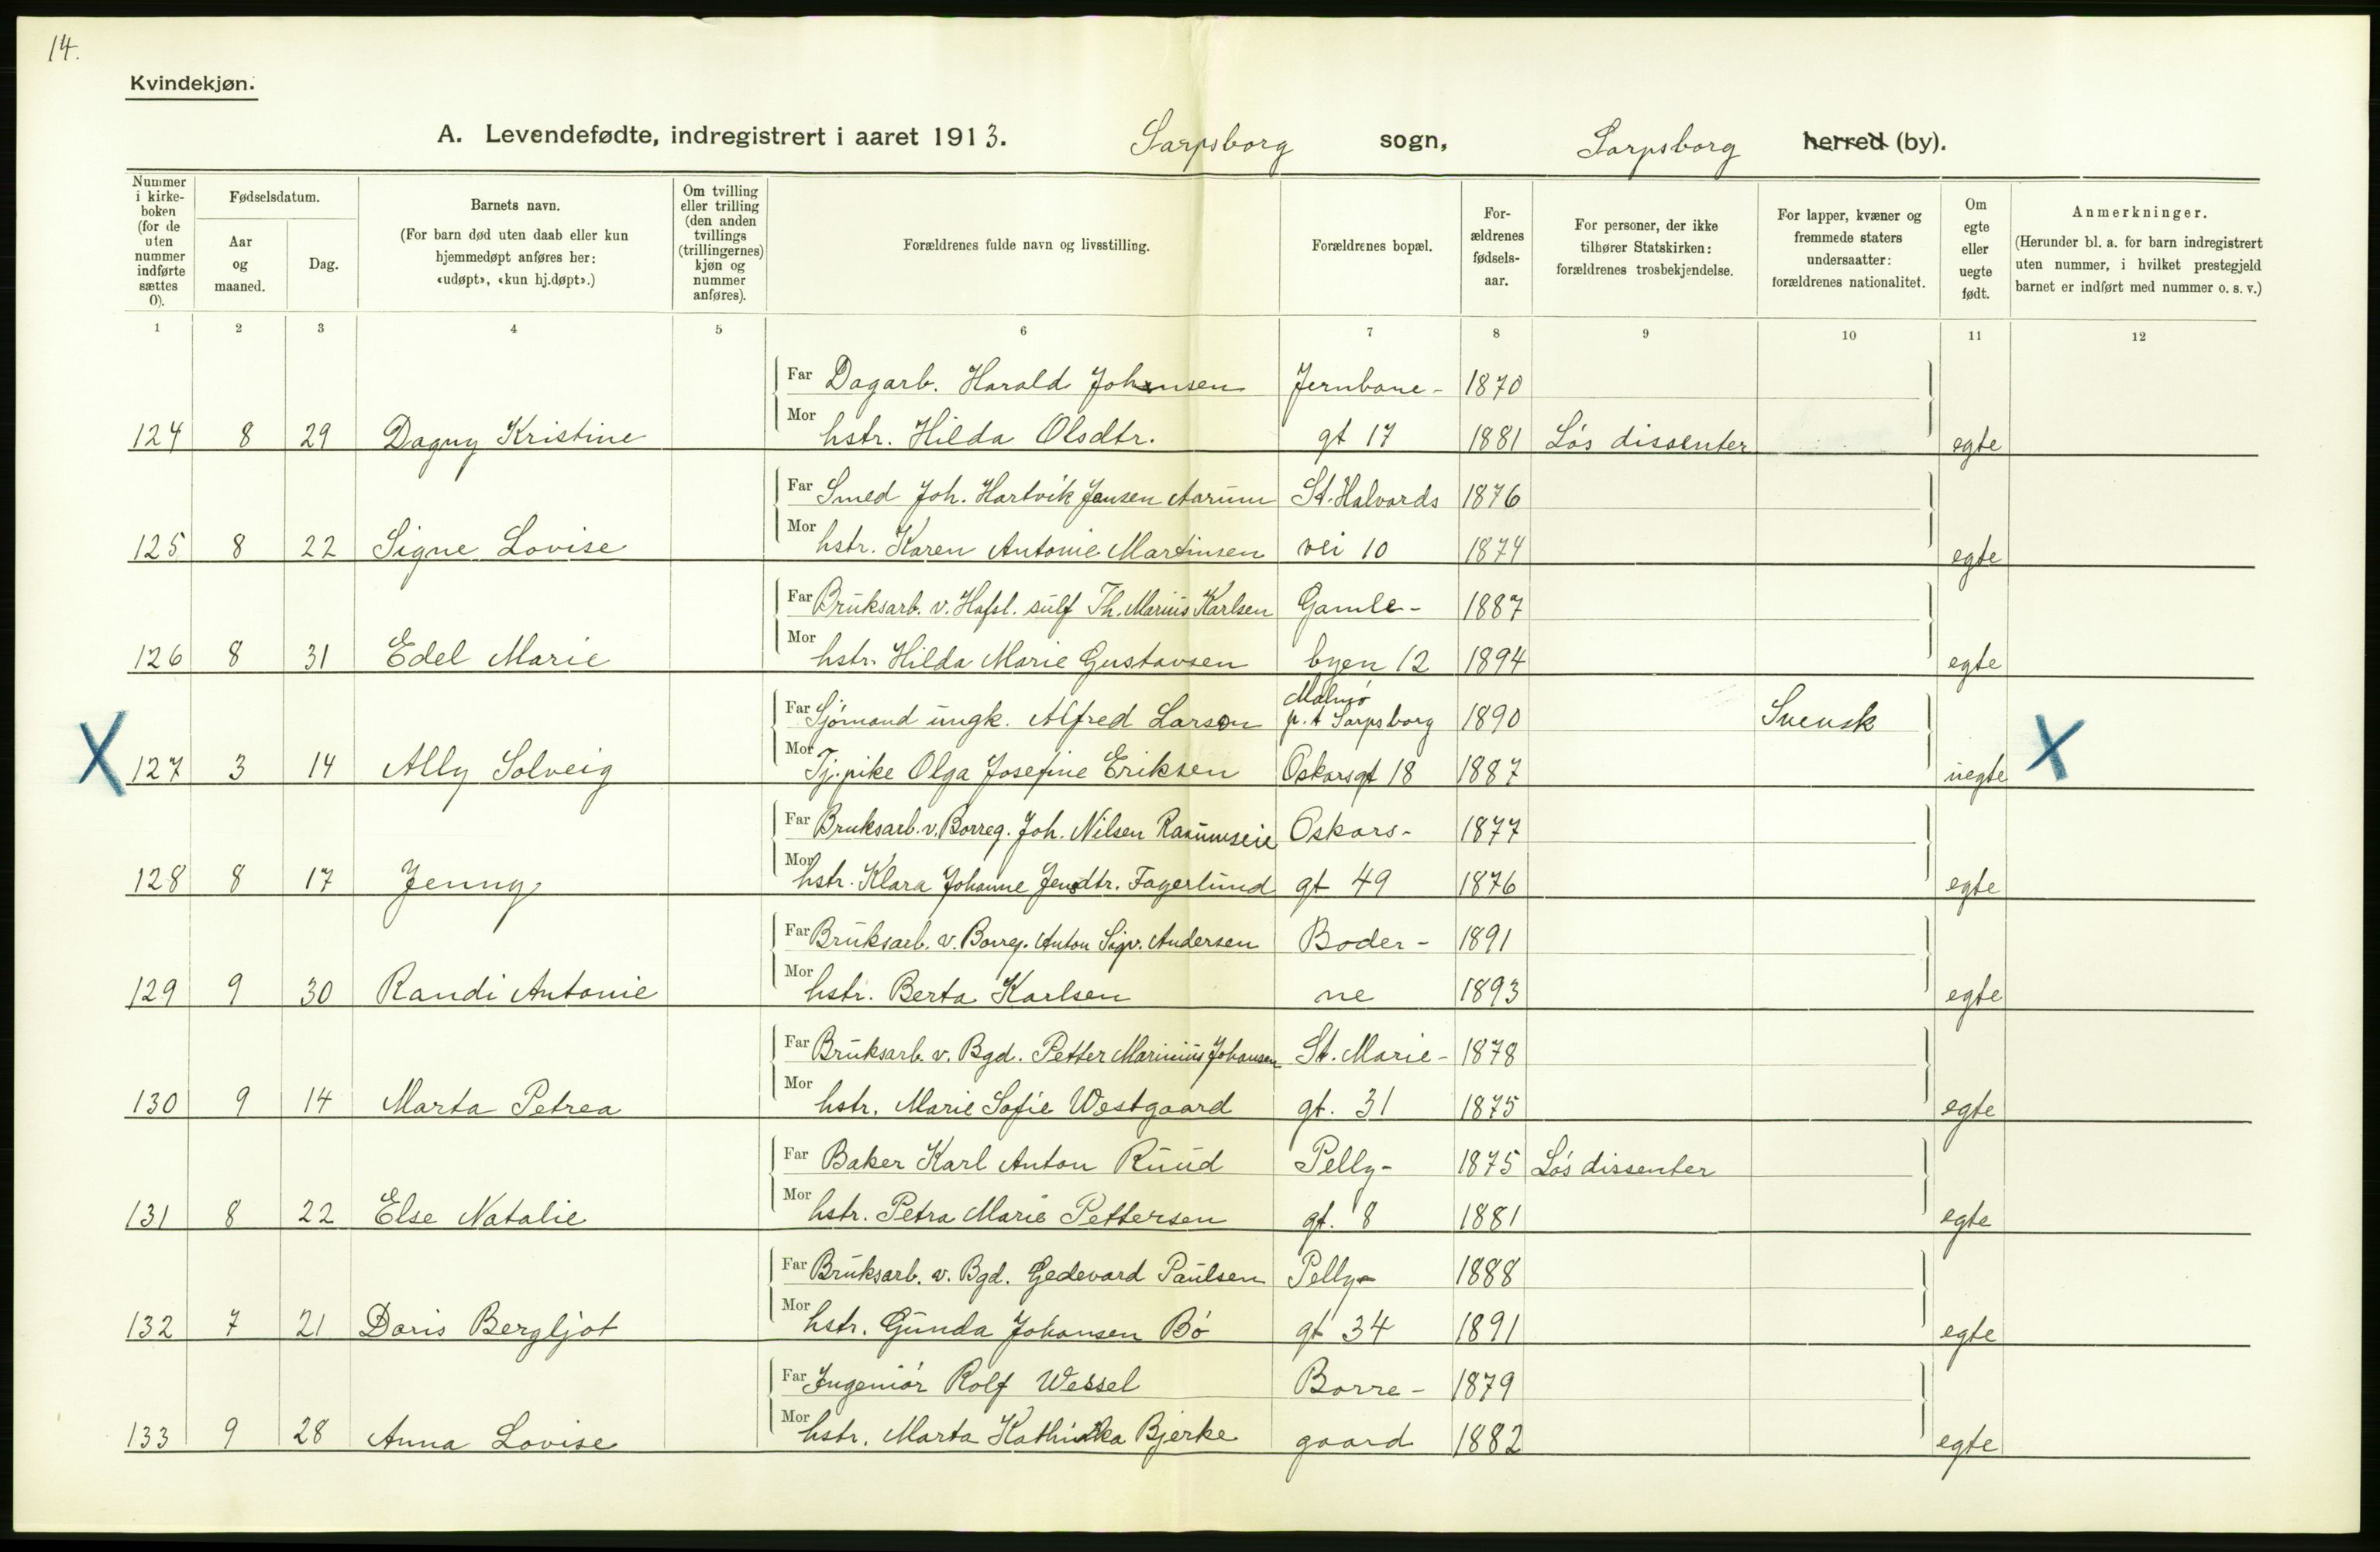 14.
Kvindekjøn.
A. Levendefødte, indregistrert i aaret 1913. Sarpsborg sogn, Sarpsborg herred (by).
Nummer i kirke-boken (for de uten nummer indførte sættes 0).
Fødselsdatum.
Aar og maaned.
Dag.
Barnets navn.
(For barn død uten daab eller kun hjemmedøpt anføres her: «udøpt», «kun hj.døpt».)
Om tvilling eller trilling (den anden tvillings (trillingernes) kjøn og nummer anføres).
Forældrenes fulde navn og livsstilling.
Forældrenes bopæl.
For-ældrenes fødsels-aar.
For personer, der ikke tilhører Statskirken: forældrenes trosbekjendelse.
For lapper, kvæner og fremmede staters undersaatter: forældrenes nationalitet.
Om egte eller uegte født.
Anmerkninger.
(Herunder bl. a. for barn indregistrert uten nummer, i hvilket prestegjeld barnet er indført med nummer o. s. v.)
1 2 3 4 5 6 7 8 9 10 11 12
Far Dagarb. Harald Johansen Jernbane- 1870
124 8 29 Dagny Kristine Mor hstr. Hilda Olsdtr. gt 17 1881 Løs dissenter egte
Far Smed Joh. Hartvik Jensen Aarum St. Halvards 1876
125 8 22 Signe Lovise Mor hstr. Karen Antonie Martinsen vei 10 1874 egte
Far Bruksarb. v. Hafsl. sulf Th. Marius Karlsen Gamle- 1887
126 8 31 Edel Marie Mor hstr. Hilda Marie Gustavsen byen 12 1894 egte
Far Sjømand ungk. Alfred Larson Malmø p.t Sarpsborg 1890 Svensk
X 127 3 14 Ally Solveig Mor Tj.pike Olga Josefine Eriksen Oskarsgt 18 1887 uegte X
Far Bruksarb. v. Borreg. Joh. Nilsen Oskars- 1877
128 8 17 Jenny Mor hstr. Klara Johanne Jensdtr. Fagerlund gt 49 1876 egte
Far Bruksarb. v. Borreg. Anton Sigv. Andersen Boder- 1891
129 9 30 Randi Antonie Mor hstr. Berta Karlsen ne 1893 egte
Far Bruksarb. v. Bgd. Petter Marinius Johansen St. Marie- 1878
130 9 14 Marta Petrea Mor hstr. Marie Sofie Westgaard gt. 31 1875 egte
Far Baker Karl Anton Ruud Pelly- 1875 Løs dissenter
131 8 22 Else Natalie Mor hstr. Petra Marie Pettersen gt. 8 1881 egte
Far Bruksarb. v. Bgd. Gedevard Paulsen Pelly- 1888
132 7 21 Doris Bergljot Mor hstr. Gunda Johansen Bø gt 34 1891 egte
Far Ingeniør Rolf Wessel Borre- 1879
133 9 28 Anna Lovise Mor hstr. Marta Kathinka Bjerke gaard 1882 egte